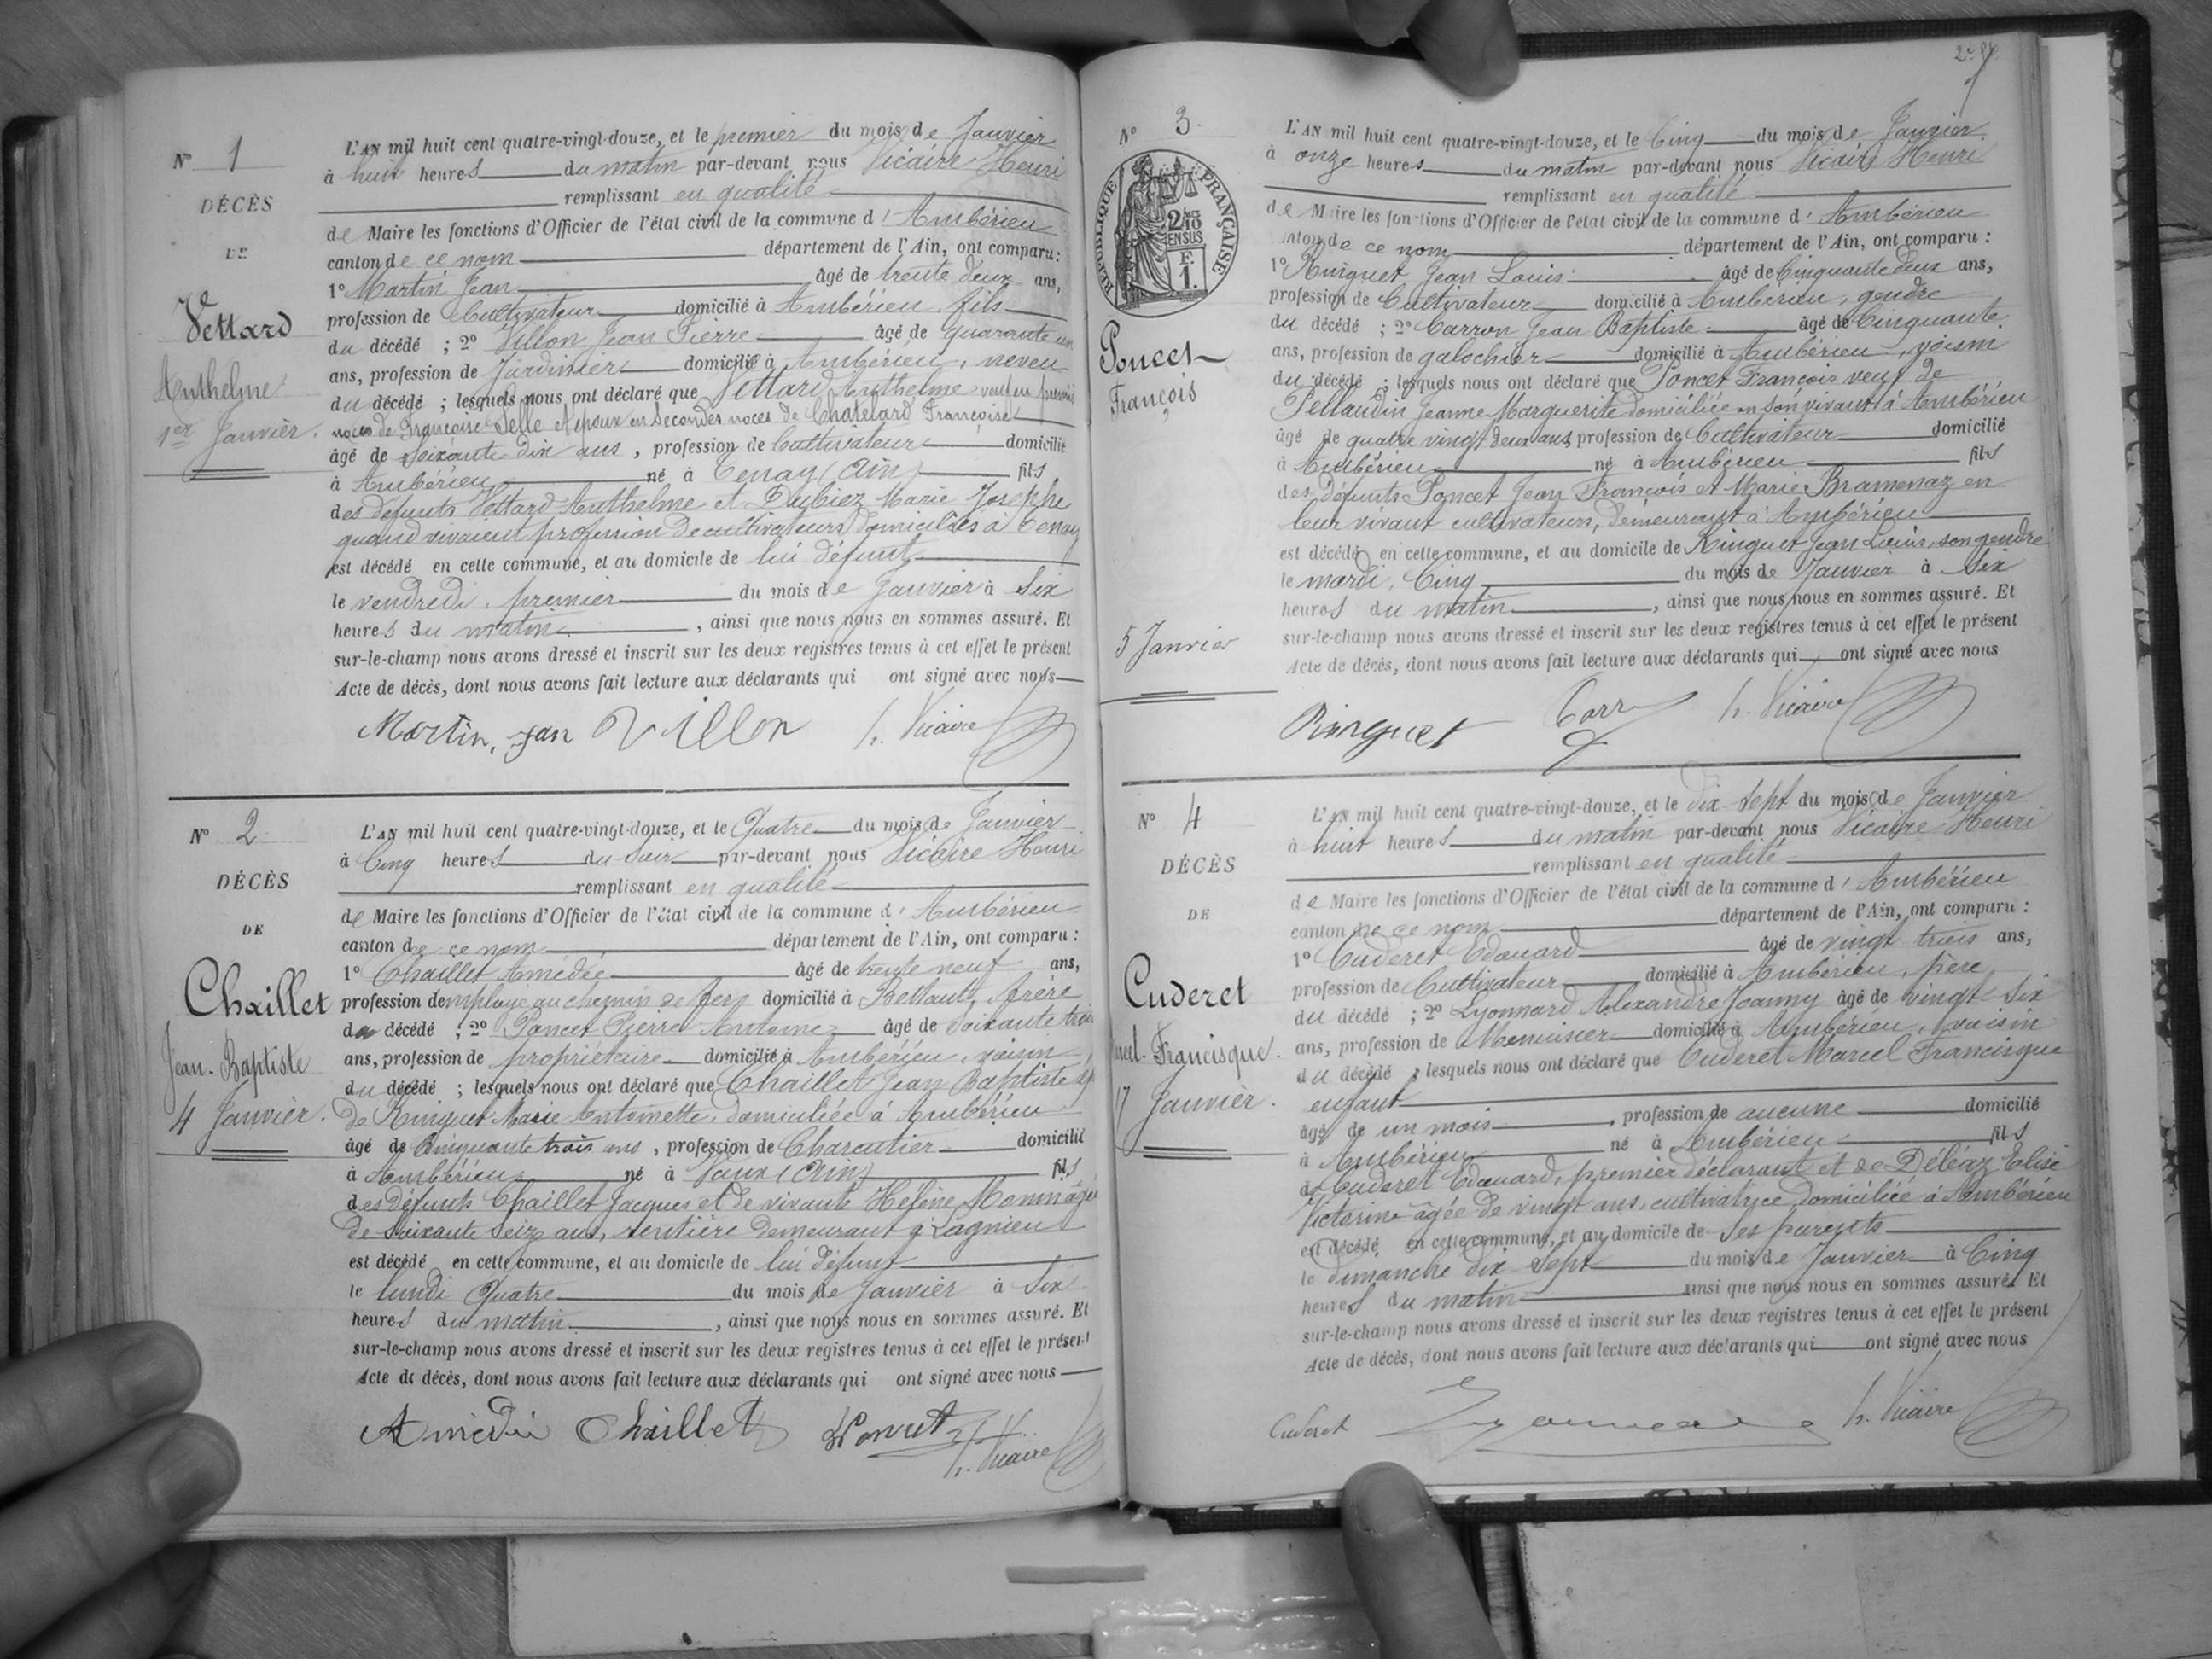 N° 1
DÉCÈS
DE
Vettard
Anthelme
1er Janvier.
L'AN mil huit cent quatre-vingt-douze, et le premier du mois de Janvier
à huit heures du matin par-devant nous Vicaire Henri
remplissant en qualité
de Maire les fonctions d'Officier de l'état civil de la commune d'Ambérieu
canton de ce nom département de l'Ain, ont comparu:
1° Martin Jean âgé de trente deux ans,
profession de Cultivateur domicilié à Ambérieu, fils
du décédé ; 2° Villon Jean Pierre âgé de quarante un
ans, profession de Jardinier domicilié à Ambérieu, neveu
du décédé ; lesquels nous ont déclaré que Vettard Anthelme veuf en premières
noces de Françoise Selle et époux en secondes noces de Chatelard Françoise
âgé de soixante-dix ans, profession de Cultivateur domicilié
à Ambérieu né à Tenay (Ain) fils
des défunts Vettard Anthelme et Dubiez Marie Josephe
quand vivaient profession de cultivateurs domiciliés à Tenay
est décédé en cette commune, et au domicile de lui défunt
le vendredi, premier du mois de Janvier à Six
heures du matin, ainsi que nous nous en sommes assuré. Et
sur-le-champ nous avons dressé et inscrit sur les deux registres tenus à cet effet le présent
Acte de décès, dont nous avons fait lecture aux déclarants qui ont signé avec nous
Martin, jan Villon h. Vicaire
N° 2
DÉCÈS
DE
Chaillet
Jean-Baptiste
4 Janvier.
L'AN mil huit cent quatre-vingt-douze, et le Quatre du mois de Janvier
à Cinq heures du Soir par-devant nous Vicaire Henri
remplissant en qualité
de Maire les fonctions d'Officier de l'état civil de la commune d'Ambérieu
canton de ce nom département de l'Ain, ont comparu :
1° Chaillet Amédée âgé de trente neuf ans,
profession d'employé au chemin de fer domicilié à frère
du décédé ; 2° Poncet Pierre Antoine âgé de Soixante trois
ans, profession de propriétaire domicilié à Ambérieu, voisin
du décédé ; lesquels nous ont déclaré que Chaillet Jean Baptiste ép.
de Ringuet Marie Antoinette, domiciliée à Ambérieu
âgé de Cinquante trois ans, profession de Charcutier domicilié
à Ambérieu né à Vaux (Ain) fils
des défunts Chaillet Jacques et de vivante Hélène âgée
de soixante seize ans, rentière demeurant à Lagnieu
est décédé en cette commune, et au domicile de lui défunt
le lundi Quatre du mois de Janvier à Six
heures du matin, ainsi que nous nous en sommes assuré. Et
sur-le-champ nous avons dressé et inscrit sur les deux registres tenus à cet effet le présent
Acte de décès, dont nous avons fait lecture aux déclarants qui ont signé avec nous
Amédée Chaillet Poncet h. Vicaire
N° 3.
RÉPUBLIQUE FRANÇAISE
2/10
EN SUS
F.
1.
Poncet
François
5 Janvier
L'AN mil huit cent quatre-vingt-douze, et le Cinq du mois de Janvier
à onze heures du matin par-devant nous Vicaire Henri
remplissant en qualité
de Maire les fonctions d'Officier de l'état civil de la commune d'Ambérieu
canton de ce nom département de l'Ain, ont comparu :
1° Ringuet Jean Louis âgé de Cinquante deux ans,
profession de Cultivateur domicilié à Ambérieu, gendre
du décédé ; 2° Carron Jean Baptiste âgé de Cinquante
ans, profession de galochier domicilié à Ambérieu, voisin
du décédé ; lesquels nous ont déclaré que Poncet François veuf de
Pellaudin Jeanne Marguerite domiciliée en son vivant à Ambérieu
âgé de quatre vingt deux ans, profession de Cultivateur domicilié
à Ambérieu né à Ambérieu fils
des défunts Poncet Jean François et Marie Bramenaz en
leur vivant cultivateurs, demeurant à Ambérieu
est décédé en cette commune, et au domicile de Ringuet Jean Louis, son gendre
le mardi, Cinq du mois de Janvier à Six
heures du matin, ainsi que nous nous en sommes assuré. Et
sur-le-champ nous avons dressé et inscrit sur les deux registres tenus à cet effet le présent
Acte de décès, dont nous avons fait lecture aux déclarants qui ont signé avec nous
Ringuet h. Vicaire
N° 4
DÉCÈS
DE
Cuderet
Marcel-Francisque.
17 Janvier.
L'AN mil huit cent quatre-vingt-douze, et le dix-sept du mois de Janvier
à huit heures du matin par-devant nous Vicaire Henri
remplissant en qualité
de Maire les fonctions d'Officier de l'état civil de la commune d'Ambérieu
canton de ce nom département de l'Ain, ont comparu :
1° Cuderet Edouard âgé de vingt trois ans,
profession de Cultivateur domicilié à Ambérieu, père
du décédé ; 2° Lyonnard Alexandre Joanny âgé de vingt-six
ans, profession de Menuisier domicilié à Ambérieu, voisin
du décédé ; lesquels nous ont déclaré que Cuderet Marcel Francisque
enfant
âgé de un mois, profession de aucune domicilié
à Ambérieu né à Ambérieu fils
de Cuderet Edouard, premier déclarant et de Déléaz Elise
Victorine âgée de vingt ans, cultivatrice domiciliée à Ambérieu
est décédé en cette commune, et au domicile de ses parents
le dimanche dix-sept du mois de Janvier à Cinq
heures du matin ainsi que nous nous en sommes assuré. Et
sur-le-champ nous avons dressé et inscrit sur les deux registres tenus à cet effet le présent
Acte de décès, dont nous avons fait lecture aux déclarants qui ont signé avec nous
Cuderet h. Vicaire